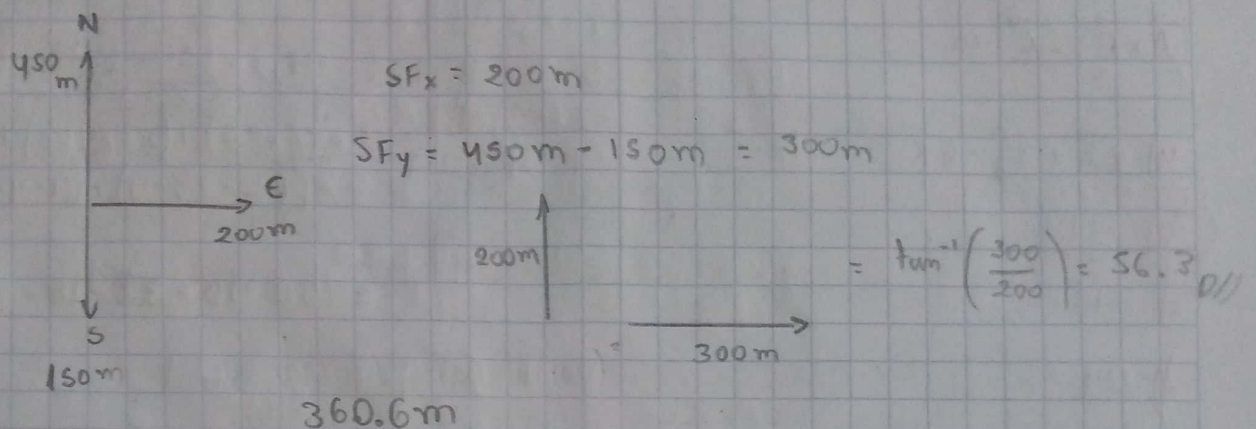 N
450
m
SFx = 200m
SFy = 450m - 150m = 300m
E
200m
200m
= tan⁻¹(300/200) = 56.3
S
300m
150m
360.6m